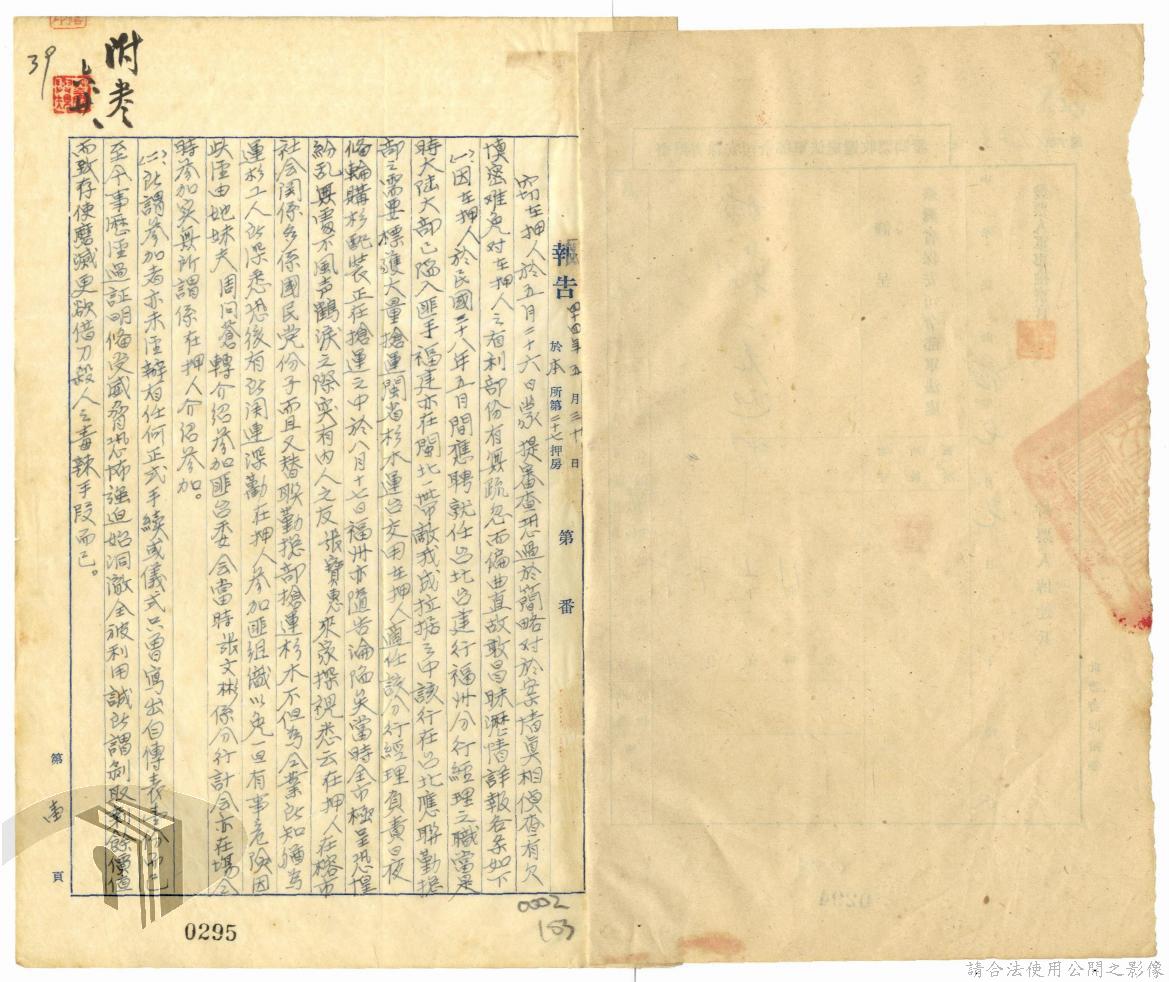 報告
四十四年五月三十日
於本所第二十七押房
第 番
窃在押人於五月二十六日蒙提審查恐過於簡略对於案情真相偵查有欠
慎密难免对在押人之有利部份有無疏忽而偏曲直故敢冒昧瀝情詳報各条如下
(一)因在押人於民國三十八年五月間應聘就任台北台建行福州分行經理之職當是
時大陆大部已陷入匪手福建亦在閩北一帶敵我成拉据之中該行在台北應聯勤总
部之需要標獲大量搶運閩省杉木運台交用在押人適任該分行經理負責日夜
備輪購杉配裝正在搶運之中於八月十七日福州亦随告淪陷矣當時全市極呈恐惶
紛乱無處不風声鶴淚之際突有內人之友張寶惠來家探視悉云在押人在榕市
社会関係多係國民党份子而且又替联勤总部搶運杉木不但為企業所知猶為
運杉工人所深悉恐後有所関連深勸在押人参加匪組織以免一旦有事危險因
此經由她妹夫周问蒼轉介紹参加匪台委会當時張文彬係分行計会亦在場同
時参加实無所謂係在押人介紹参加。
(二)所謂参加者亦未經辦有任何正式手續或儀式只曾寫出自傳表壹份而已
至今事歷經過証明備受威脅恐怖强迫始洞澈全被利用誠所謂剝取剩餘價值
而致存使磨滅更欲借刀殺人之毒辣手段而已。
第 壹 頁
附卷
39
0295
0002
153
請合法使用公開之影像